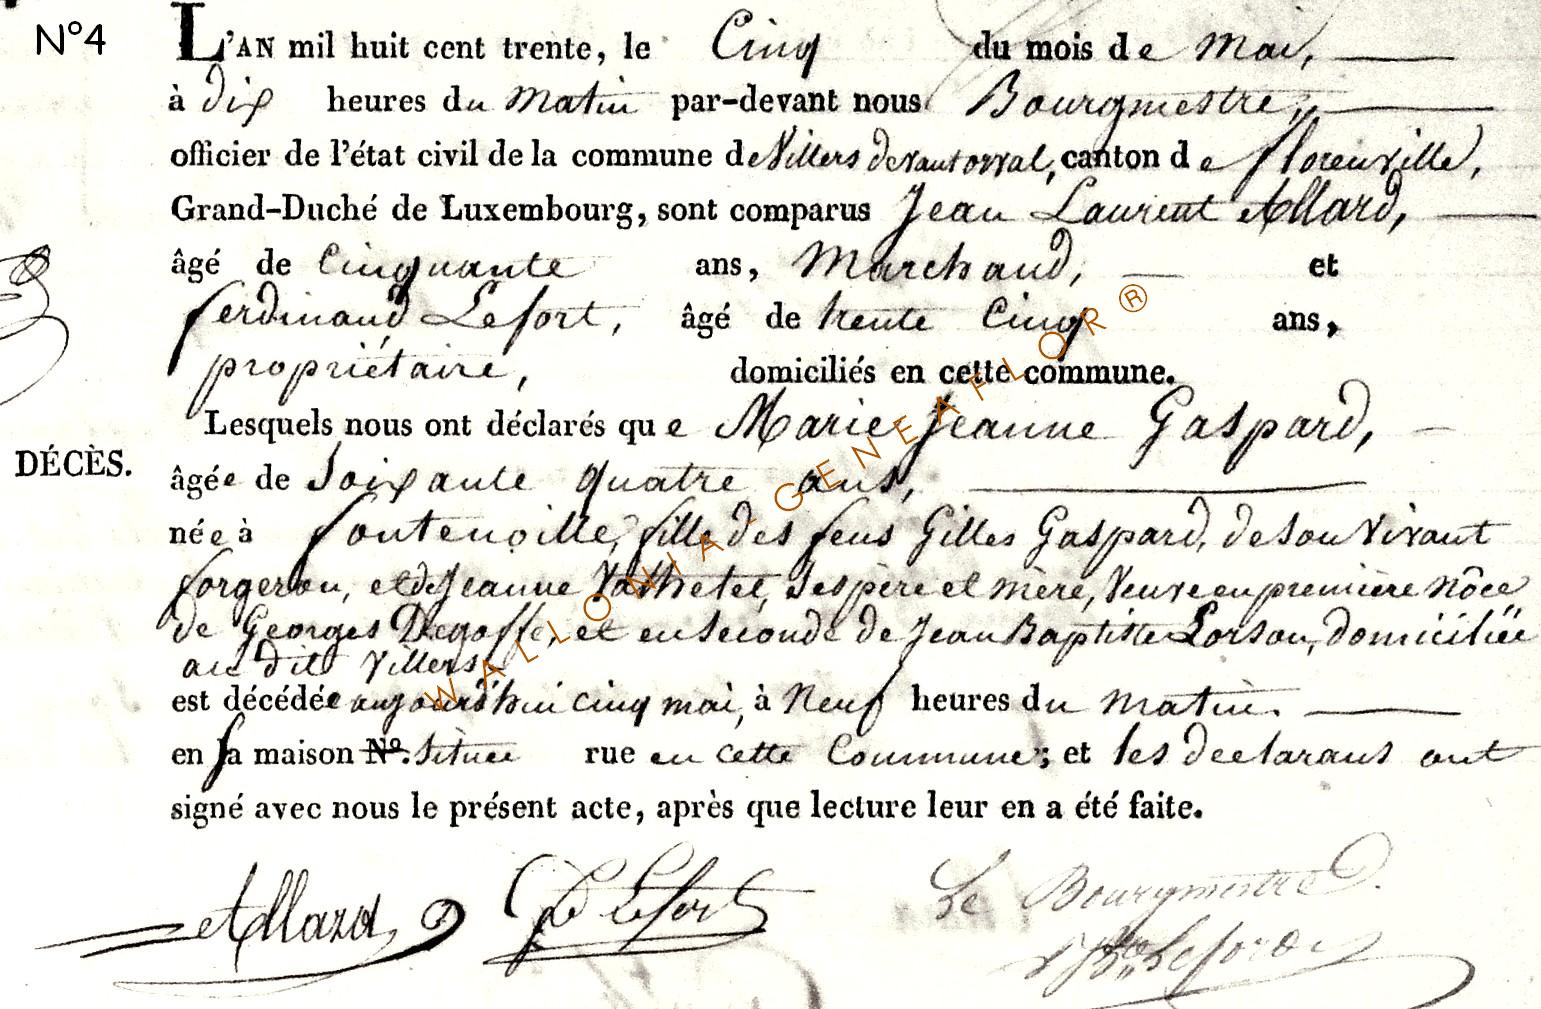 N°4
L'AN mil huit cent trente, le Cinq du mois de Mai,
à dix heures du Matin par-devant nous Bourgmestre,
officier de l'état civil de la commune de Villers devant orval, canton de florenville,
Grand-Duché de Luxembourg, sont comparus Jean Laurent Allard,
âgé de Cinquante ans, Marchand, et
ferdinand Lefort, âgé de trente Cinq ans,
propriétaire, domiciliés en cette commune.
Lesquels nous ont déclarés que Marie Jeanne Gaspard,
DÉCÈS.
âgée de Soixante quatre ans,
née à fontenoille, fille des feus Gilles Gaspard, de son vivant
forgeron, et de Jeanne ses père et mère, Veuve en première nôce
de Georges Degoffe, et en seconde de Jean Baptiste Lorson, domiciliée
au dit Villers
est décédée aujourd'hui cinq mai, à Neuf heures du matin.
en sa maison N°. située rue en cette Commune; et les declarans ont
signé avec nous le présent acte, après que lecture leur en a été faite.
Allard Lefort Le Bourgmestre
WALLONIA-GENEAFLOR®